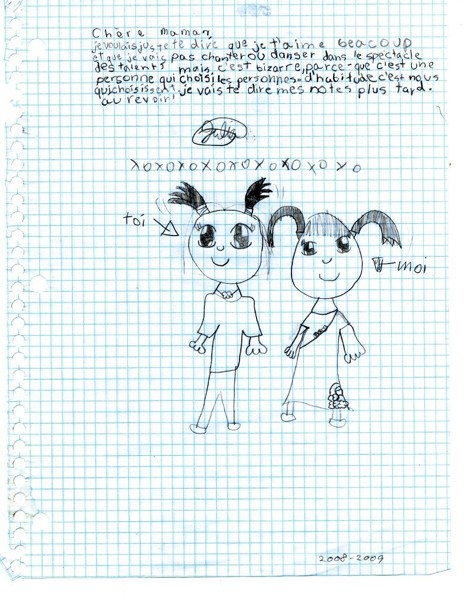 Chère maman,
je voulais juste te dire que je t'aime beacoup
et que je vais pas chanter ou danser dans le spectacle
des talents mais c'est bizarre, parce-que c'est une
personne qui choisi les personnes. d'habitude c'est nous
qui choisissent. je vais te dire mes notes plus tard.
au revoir!
xoxoxoxoxoxoxoxoxo
toi
moi
2008-2009